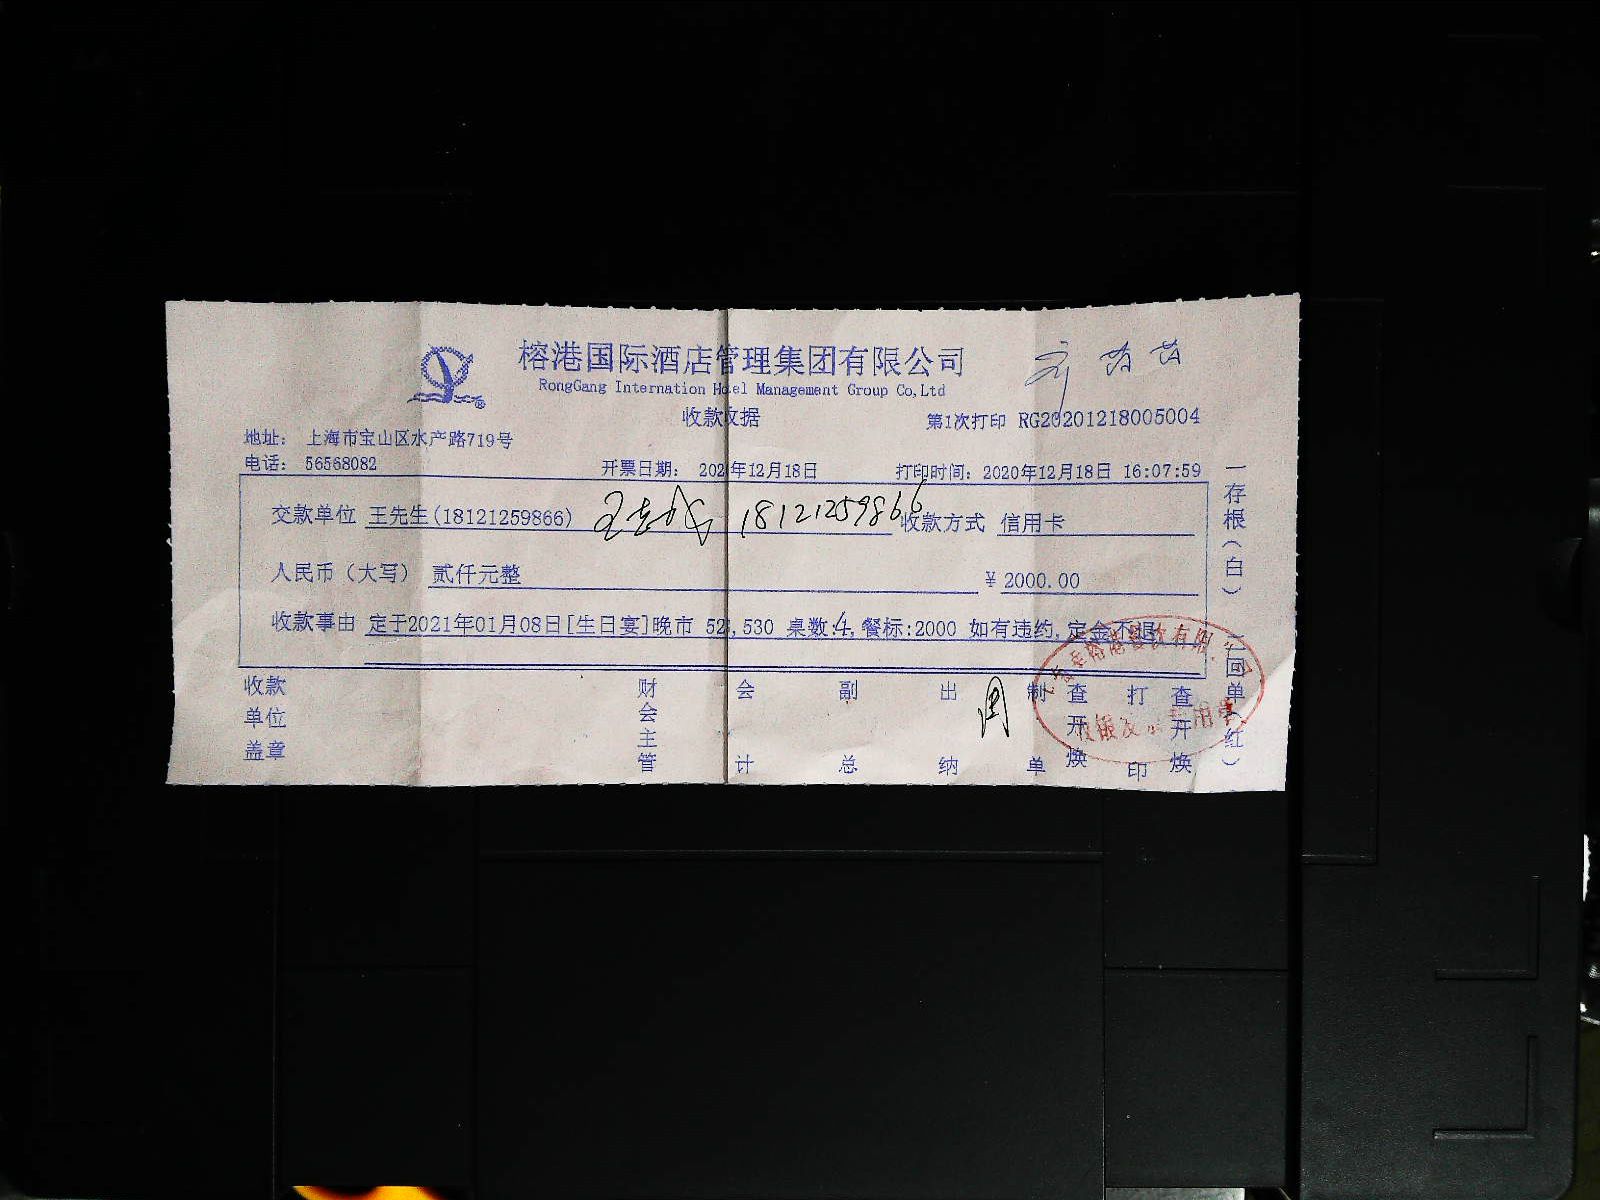 榕港国际酒店管理集团有限公司
RongGang Internation Hotel Management Group Co,Ltd
收款收据
第1次打印 RG20201218005004
地址: 上海市宝山区水产路719号
电话: 56568082
开票日期: 202 年12月18日
打印时间: 2020年12月18日 16:07:59
交款单位 王先生(18121259866) 18121259866 收款方式 信用卡
人民币(大写) 贰仟元整 ¥ 2000.00
收款事由 定于2021年01月08日[生日宴]晚市 52 ,530 桌数:4, 餐标:2000 如有违约,定金不退
收款单位盖章
财会主管
会计
副总
出纳
周
制单
查开焕
打印
查开焕
一存根(白)
二回单(红)